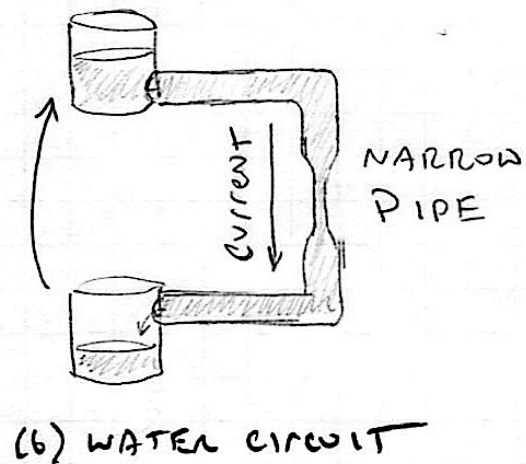 CURRENT
NARROW
PIPE
(b) WATER CIRCUIT